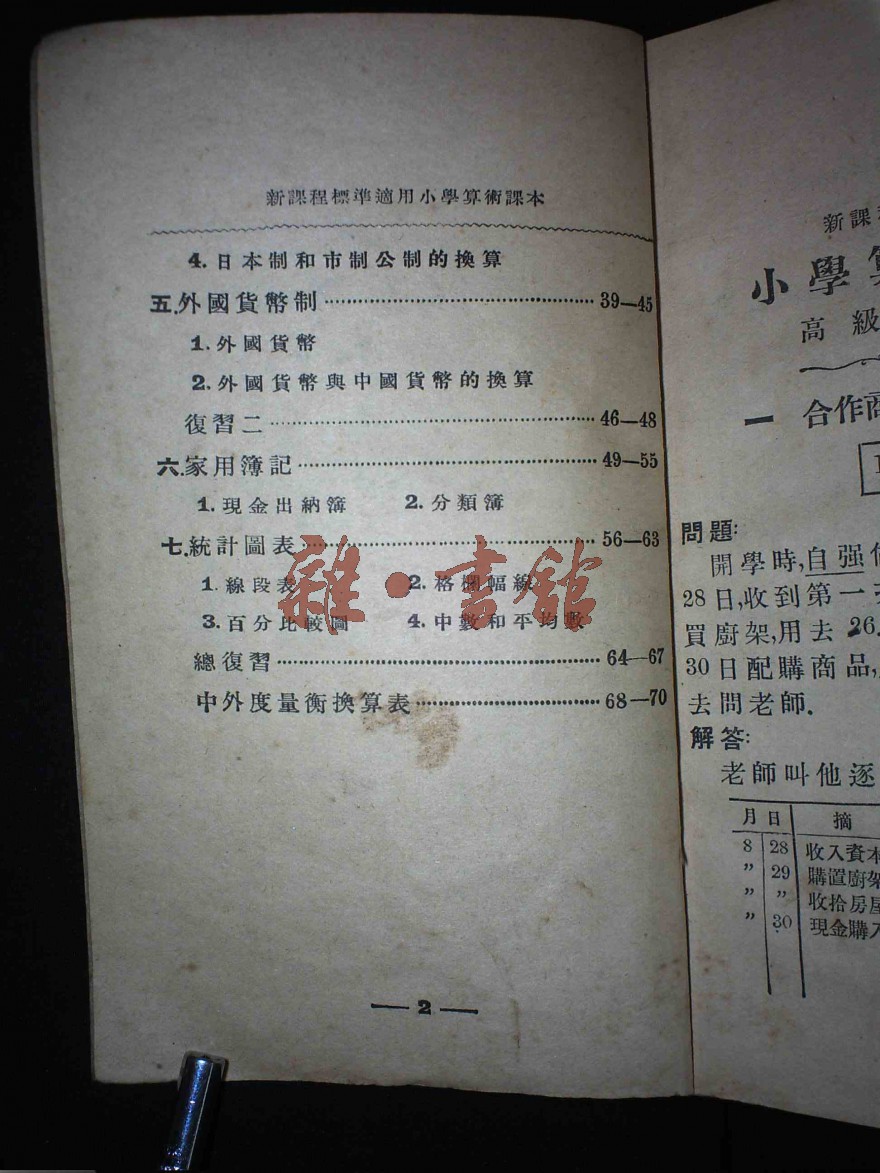 新課程標準適用小學算術課本
4. 日本制和市制公制的換算
五.外國貨幣制 39—45
1. 外國貨幣
2. 外國貨幣與中國貨幣的換算
復習二 46—48
六.家用簿記 49—55
1. 現金出納簿 2. 分類簿
七.統計圖表 56—63
1. 線段表 2. 格欄幅線
3. 百分比較圖 4. 中數和平均數
總復習 64—67
中外度量衡換算表 68—70
— 2 —
雜·書館
新課
小學
高級
一 合作商
問題:
開學時,自强
28日,收到第一
買廚架,用去 26.
30日配購商品,
去問老師.
解答:
老師叫他逐
月 日 摘
8 28 收入資本
” 29 購置廚架
” ” 收拾房屋
” 30 現金購入